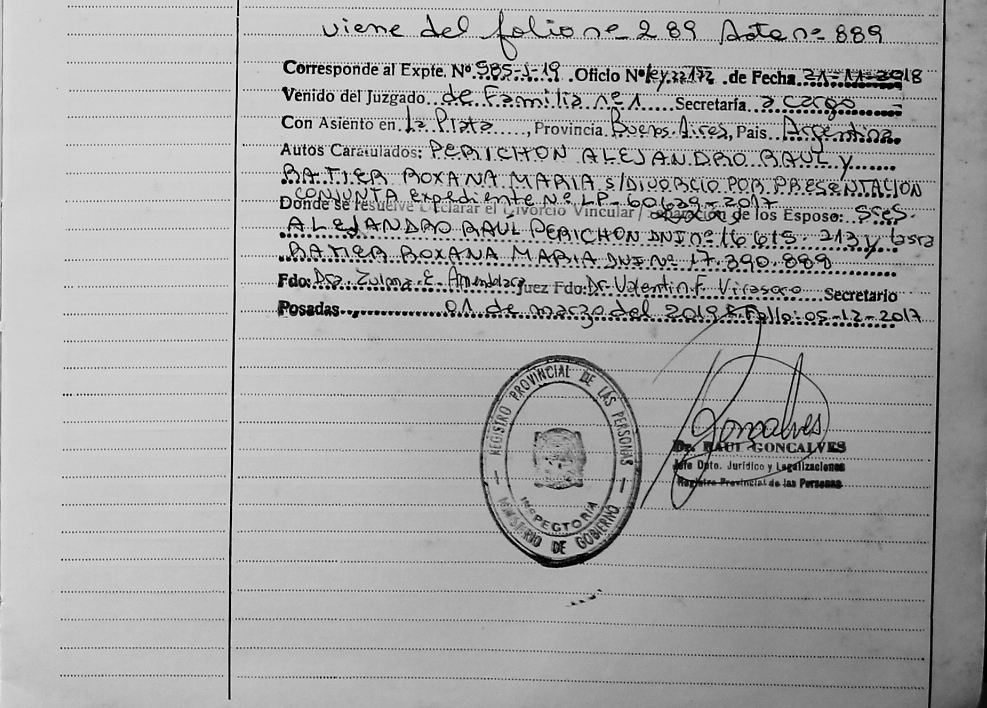 viene del folio nº 289 Acta nº 889
Corresponde al Expte. Nº 585-J-19 .Oficio Nº Ley.22172 .de Fecha 21-11-2018
Venido del Juzgado de Familia nº 1 Secretaría a cargo
Con Asiento en La Plata, Provincia Buenos Aires, Pais Argentina
Autos Caratulados: PERICHON ALEJANDRO RAUL y
RATIER ROXANA MARIA S/DIVORCIO POR PRESENTACION
CONJUNTA Expediente Nº LP-60639-2017
Donde se resuelve Declarar el Divorcio Vincular / de los Esposo: Sres.
ALEJANDRO RAÚL PERICHON DNI nº 16.615.213 y
RATIER ROXANA MARIA DNI Nº 17.390.889
Fdo: Dra. Zulma E. Amendara Juez Fdo: Dr. Valentin F. Virasoro Secretario
Posadas 01 de marzo del 2019 Fallo: 05-12-2017
REGISTRO PROVINCIAL DE LAS PERSONAS
INSPECTORIA
MINISTERIO DE GOBIERNO
Goncalves
Dr. RAUL GONCALVES
Jefe Dpto. Jurídico y Legalizaciones
Registro Provincial de las Personas